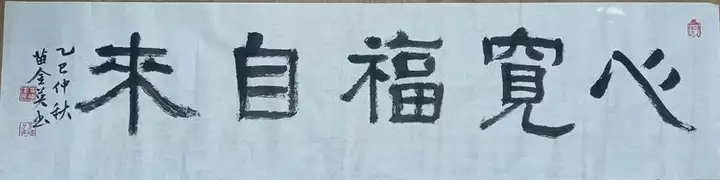 心寬福自來
乙巳仲秋
苗金英书